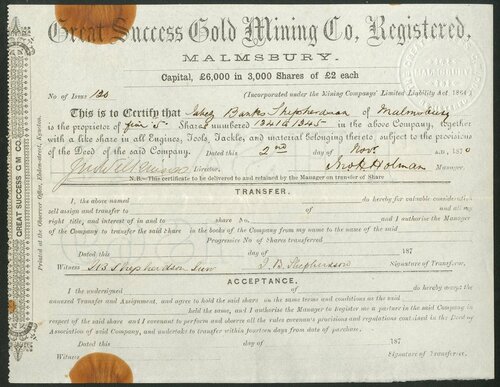 Great Success Gold Mining Co, Registered,
MALMSBURY.
Capital, £6,000 in 3,000 Shares of £2 each
No of Issue 120 (Incorporated under the Mining Companys' Limited Liability Act 1864)
This is to Certify that Jabez Banks Shepherdson of Malmsbury
is the proprietor of five 5 Shares numbered 1341 to 1345 in the above Company, together
with a like share in all Engines, Tools, Tackle, and material belonging thereto, subject to the provisions
of the Deed of the said Company. Dated this 2nd day of Nov. 1870
Director. Holman Manager.
N.B.—This certificate to be delivered to and retained by the Manager on transfer of Share
TRANSFER.
I, the above named do hereby for valuable consideration
sell assign and transfer to of and all my
right title, and interest of in and to share No. and I authorise the Manager
of the Company to transfer the said Share in the books of the Company from my name to the name of the said
Progressive No of Shares transferred
Dated this day of 187
Witness Shepherdson J. B. Shepherdson Signature of Transferror.
ACCEPTANCE.
I the undersigned of do hereby accept the
annexed Transfer and Assignment, and agree to hold the said share on the same terms and conditions as the said
held the same, and I authorise the Manager to Register me a partner in the said Company in
respect of the said share and I covenant to perform and observe all the rules covenants provisions and regulations contained in the Deed of
Association of said Company, and undertake to transfer within fourteen days from date of purchase.
Dated this day of 187
Witness Signature of Transferree.
GREAT SUCCESS G M CO.
Printed at the Observer Office, Kyneton.